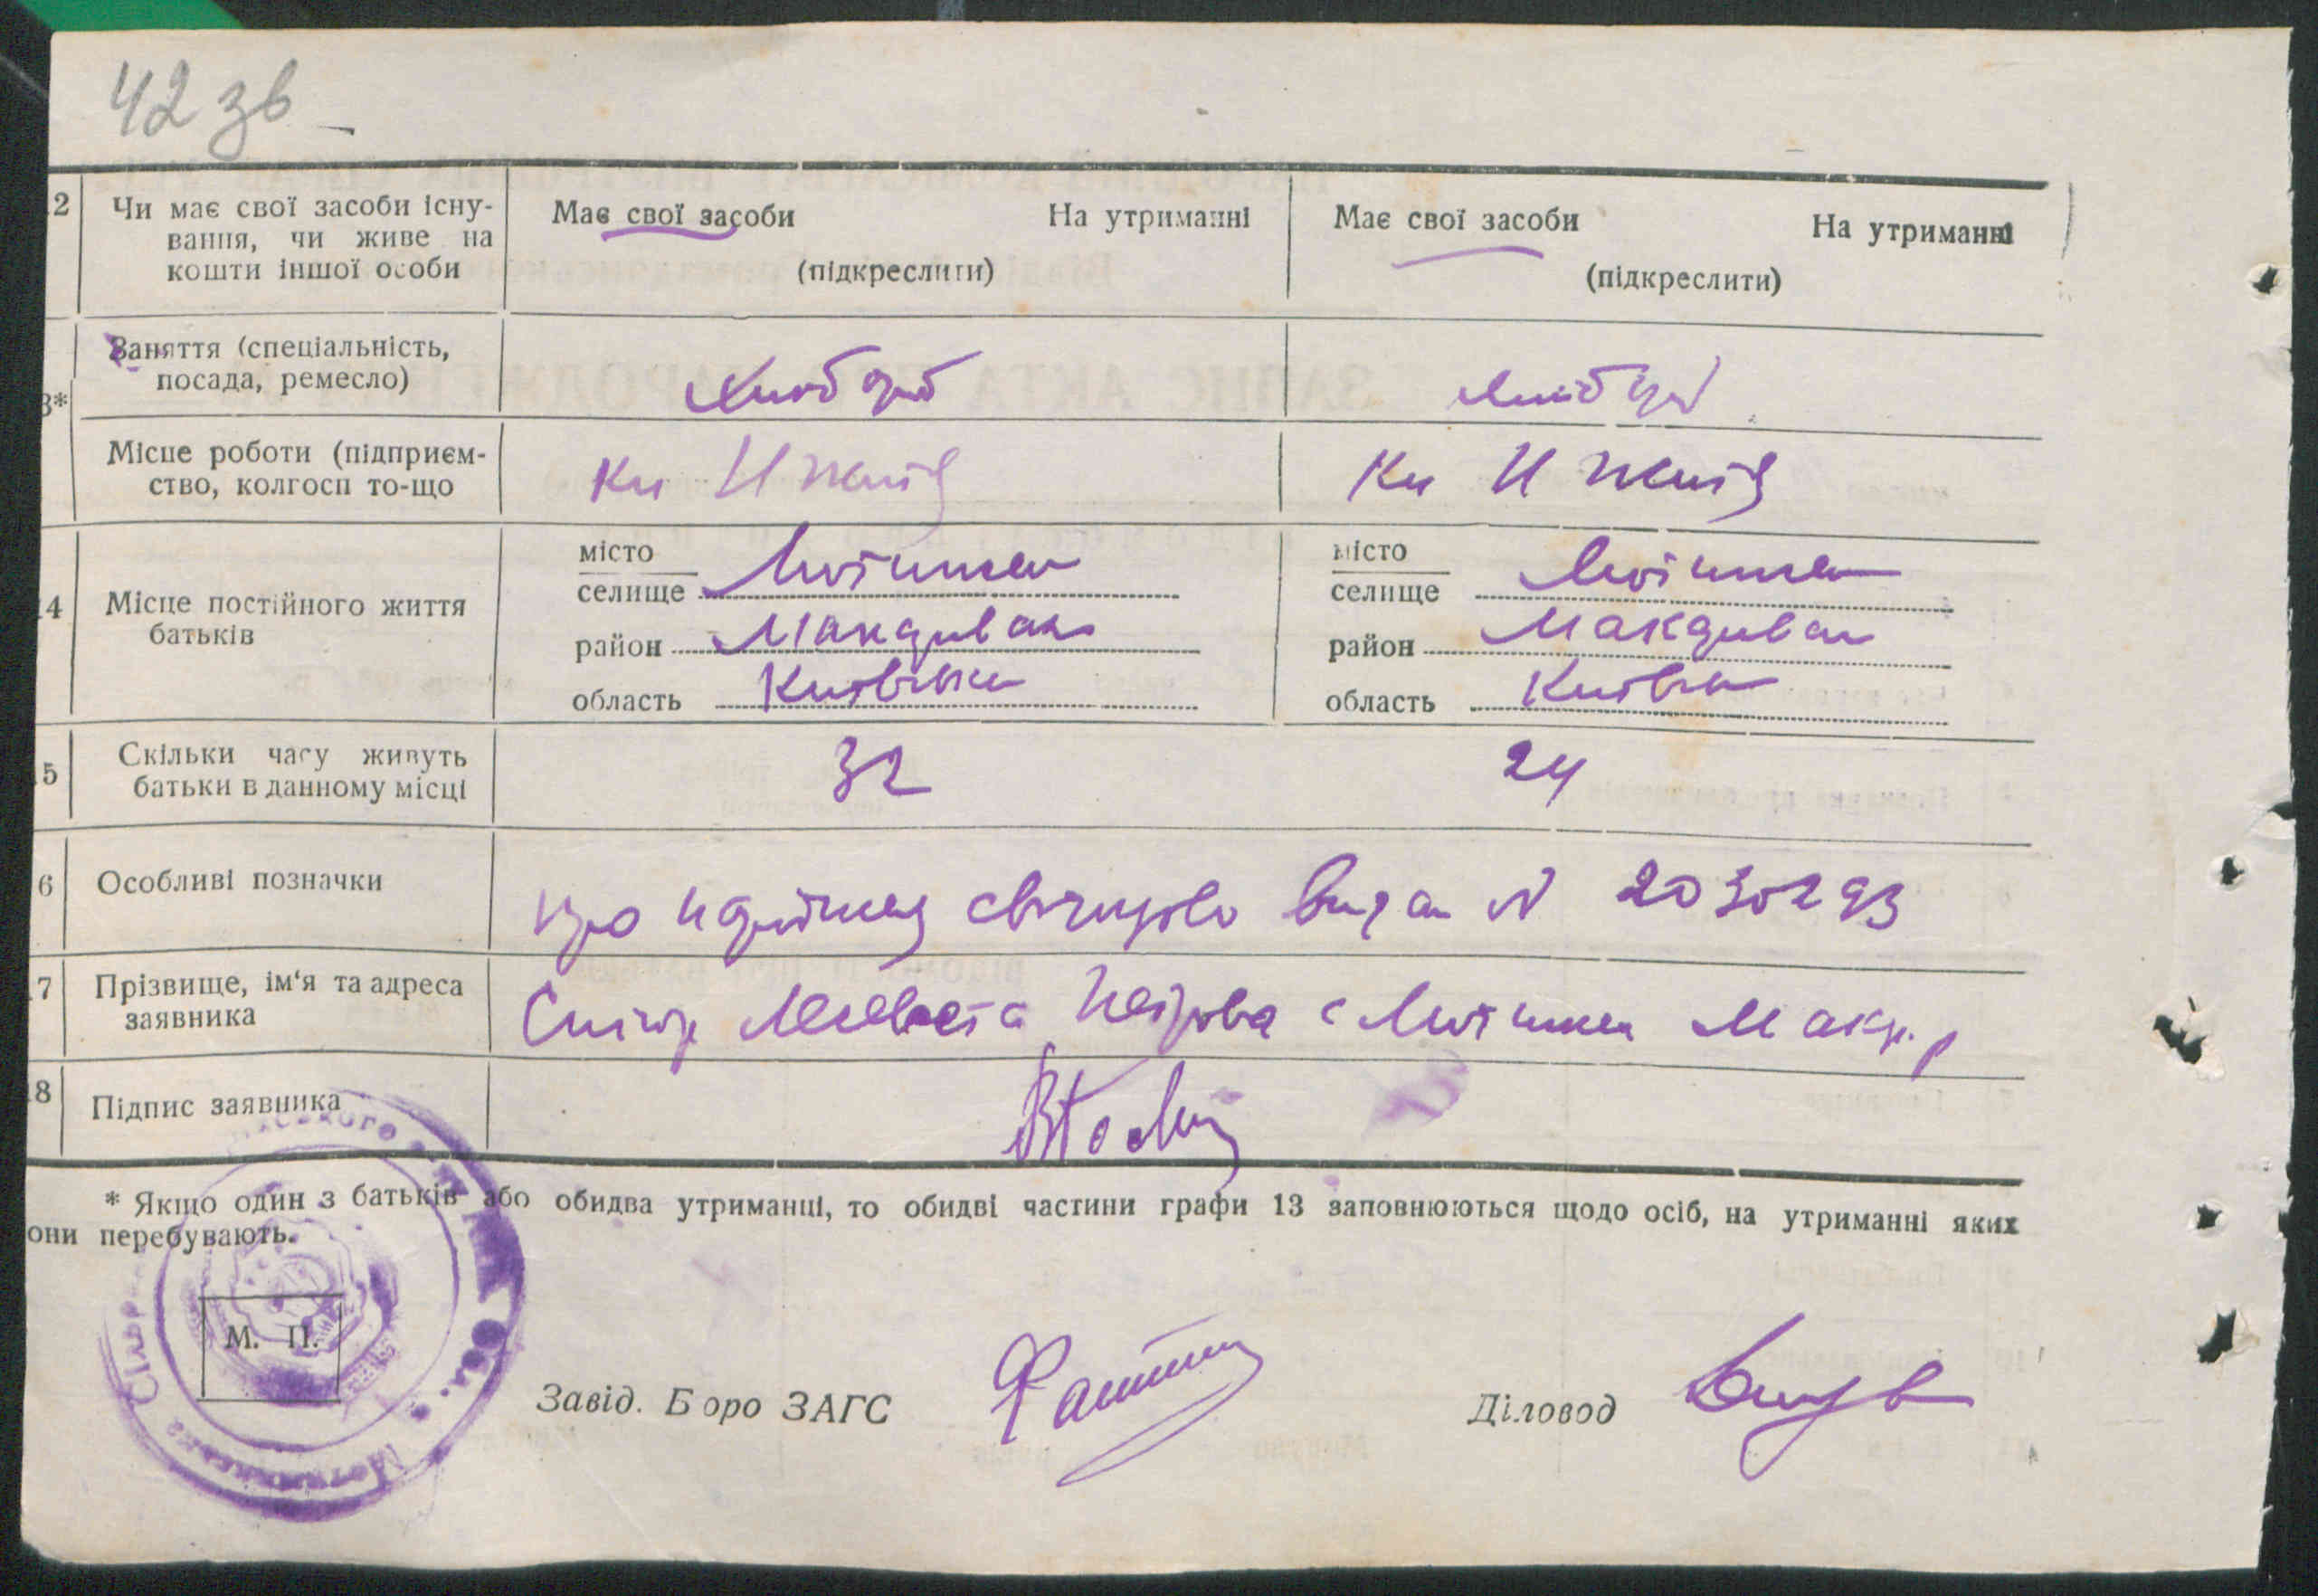 42 зв
2 Чи має свої засоби існу-
вання, чи живе на
кошти іншої особи
Має свої засоби На утриманні
(підкреслити)
Має свої засоби На утриманні
(підкреслити)
3* Заняття (спеціальність,
посада, ремесло)
Хлібороб
Хлібороб
Місце роботи (підприєм-
ство, колгосп то-що
4 Місце постійного життя
батьків
місто
селище Мотижин
район Макарівськ
область Київська
місто
селище Мотижин
район Макарівськ
область Київськ
5 Скільки часу живуть
батьки в данному місці
32
24
6 Особливі позначки
про народження свідоцтво видан № 2030293
7 Прізвище, ім'я та адреса
заявника
Петрова с Мотижин Макар. р
8 Підпис заявника
* Якщо один з батьків або обидва утриманці, то обидві частини графи 13 заповнюються щодо осіб, на утриманні яких
они перебувають.
М. П.
Завід. Бюро ЗАГС
Діловод